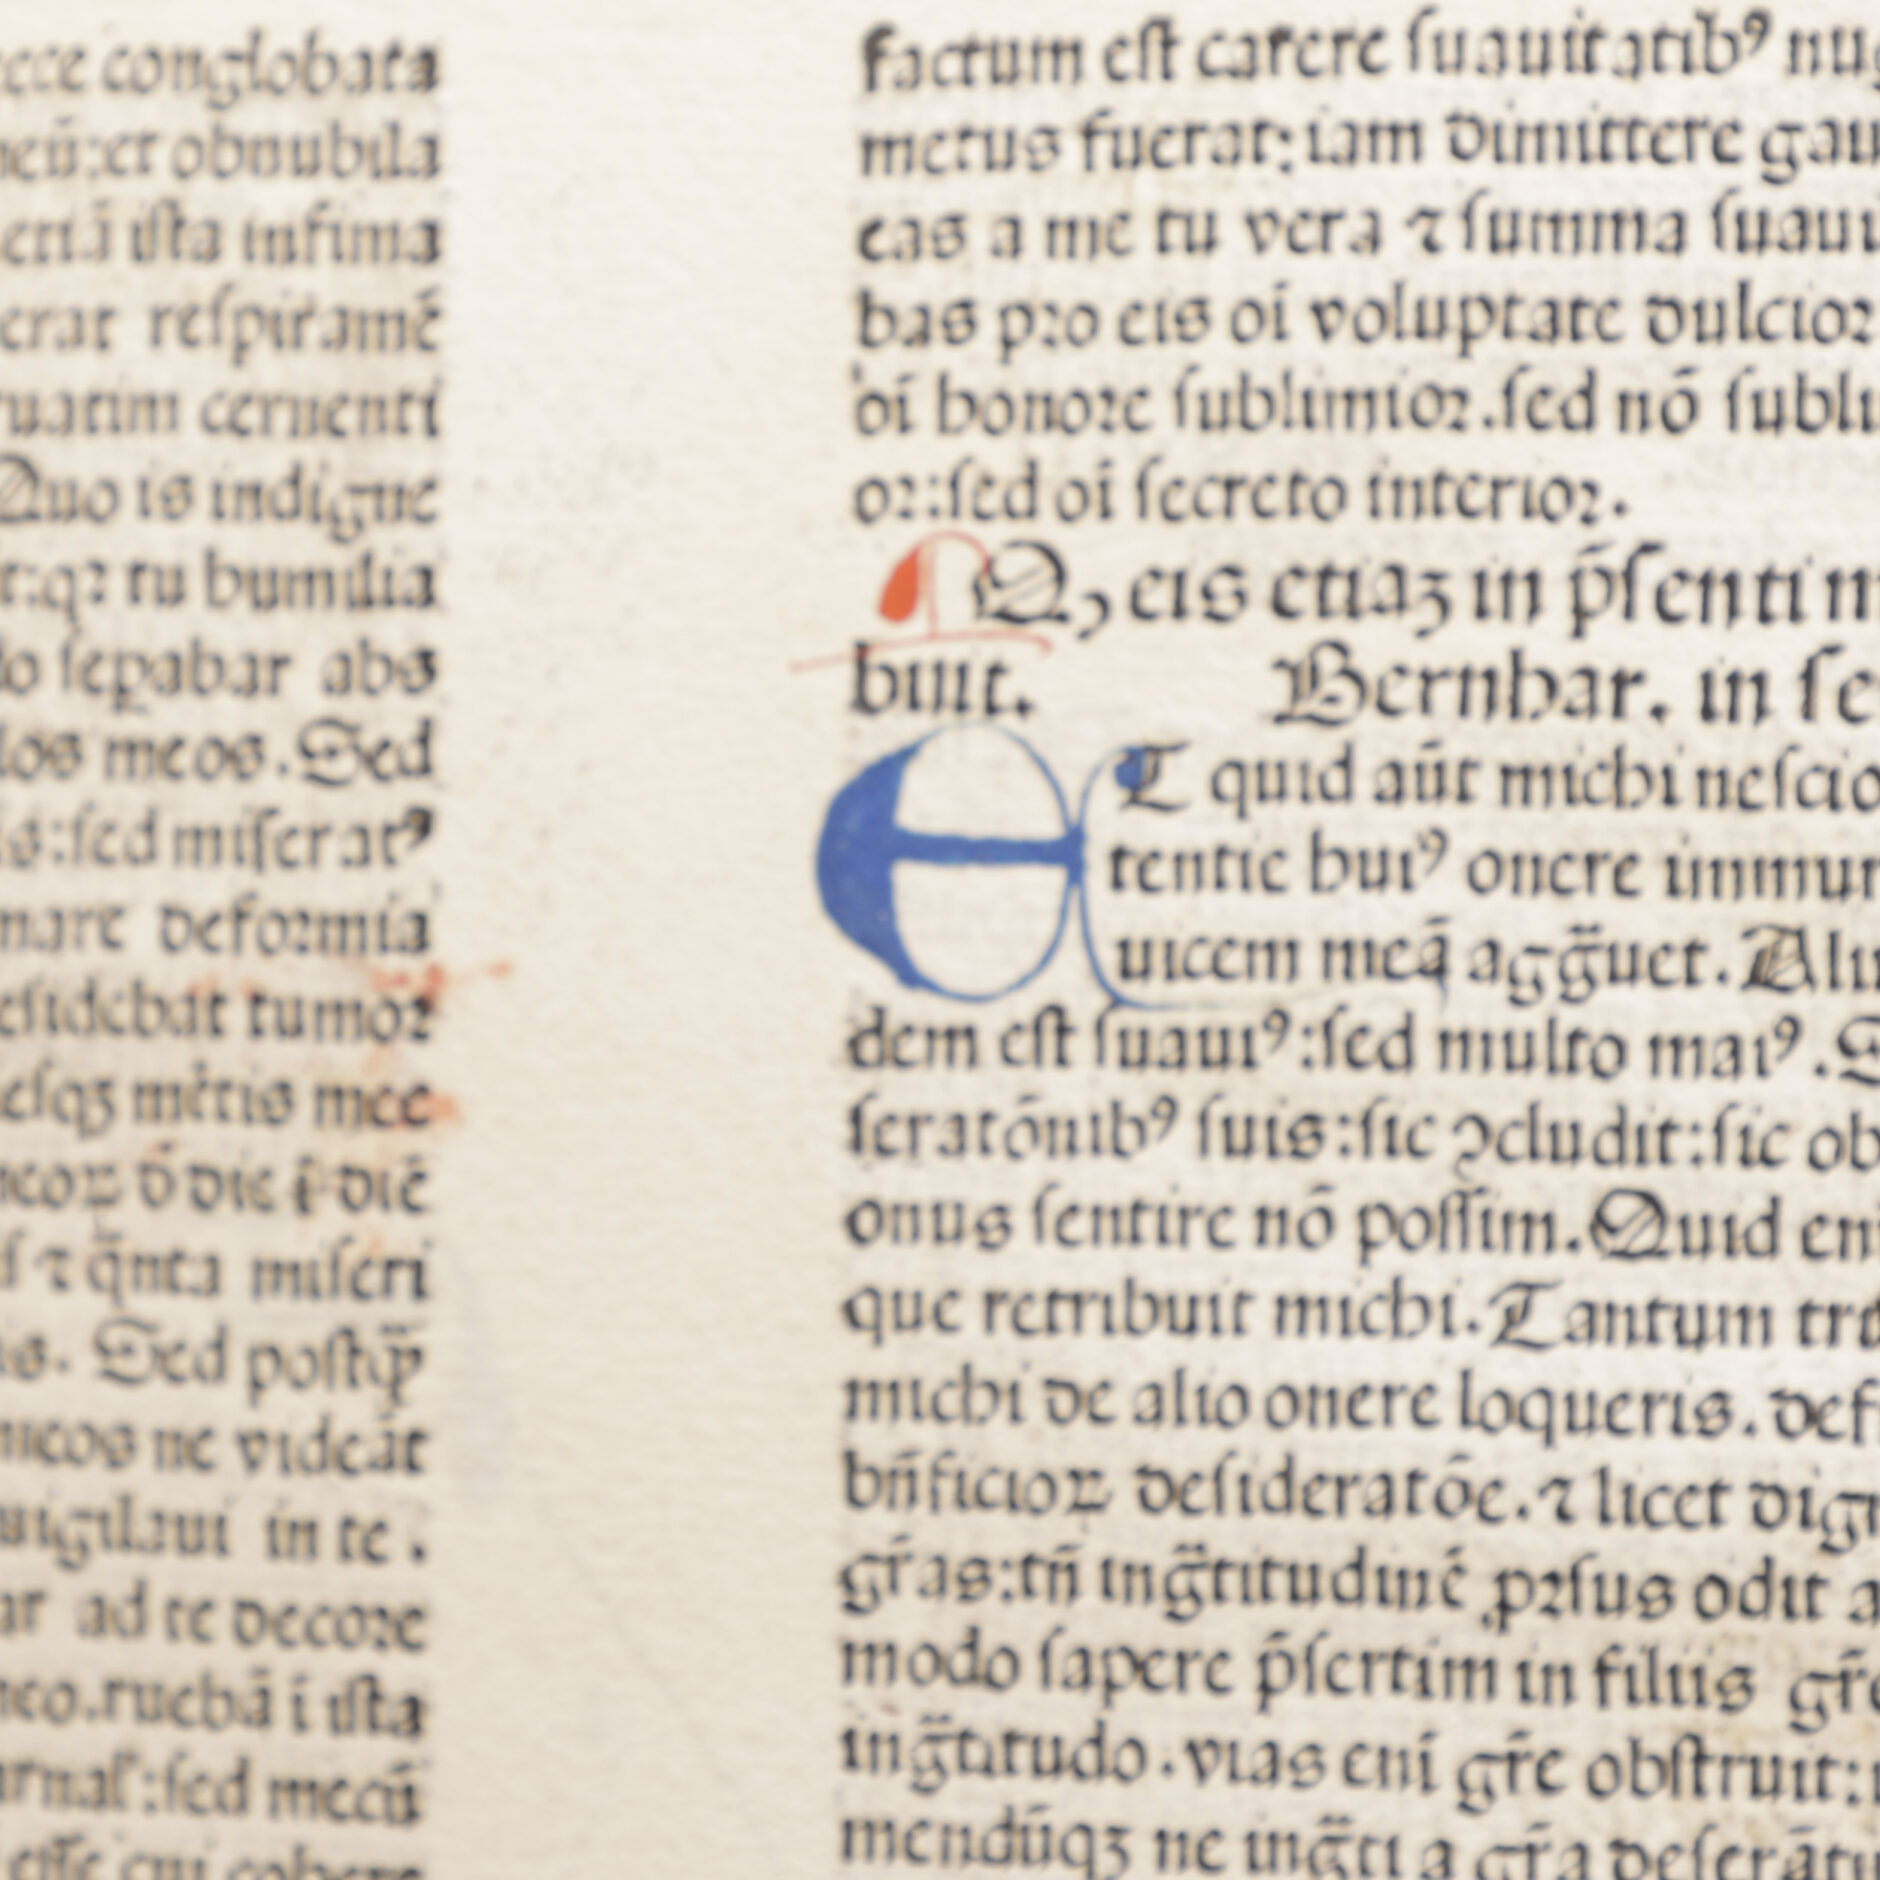 conglobata
:et obnubila
ista infima
erat respiramē
uatim ceruenti
Quo is indigne
:q2 tu humilia
sepabar abs
los meos. Sed
is:sed miserat⁹
mare deformia
residebat tumor
esqꝫ mētis mee
ꝺ die ī diē
⁊ q̄nta miseri
is. Sed postq̈ꝫ
meos ne videāt
uigilaui in te.
ar ad te decore
meo.ruebā ī ista
:sed mecū
esse qui cohere
factum est carere suauitatib⁹ nug
metus fuerat:iam dimittere gau
eas a me tu vera ⁊ summa suaui
bas pro eis oī voluptate dulcior
oī honore sublimior.sed nō subli
or:sed oī secreto interior.
¶ Q, eis etiaꝫ in p̄senti m
buit. Bernhar. in se
ET quid aūt michi nescio
tentie hui⁹ onere immun
uicem meā agg̈uet. Aliu
dem est suaui⁹:sed multo mai⁹. S
seratōnib⁹ suis:sic ꝯcludit:sic ob
onus sentire nō possim. Quid eni
que retribuit michi. Tantum tr
michi de alio onere loqueris. def
bn̄ficioꝝ desideratōe. ⁊ licet dign
gr̄as:tn̄ ing̈titudinē ꝓrsus odit a
modo sapere p̄sertim in filiis gr̄e
ing̈titudo. vias enī gr̄e obstruit:
mendūqꝫ ne ing̈ti a gr̄a deserātu